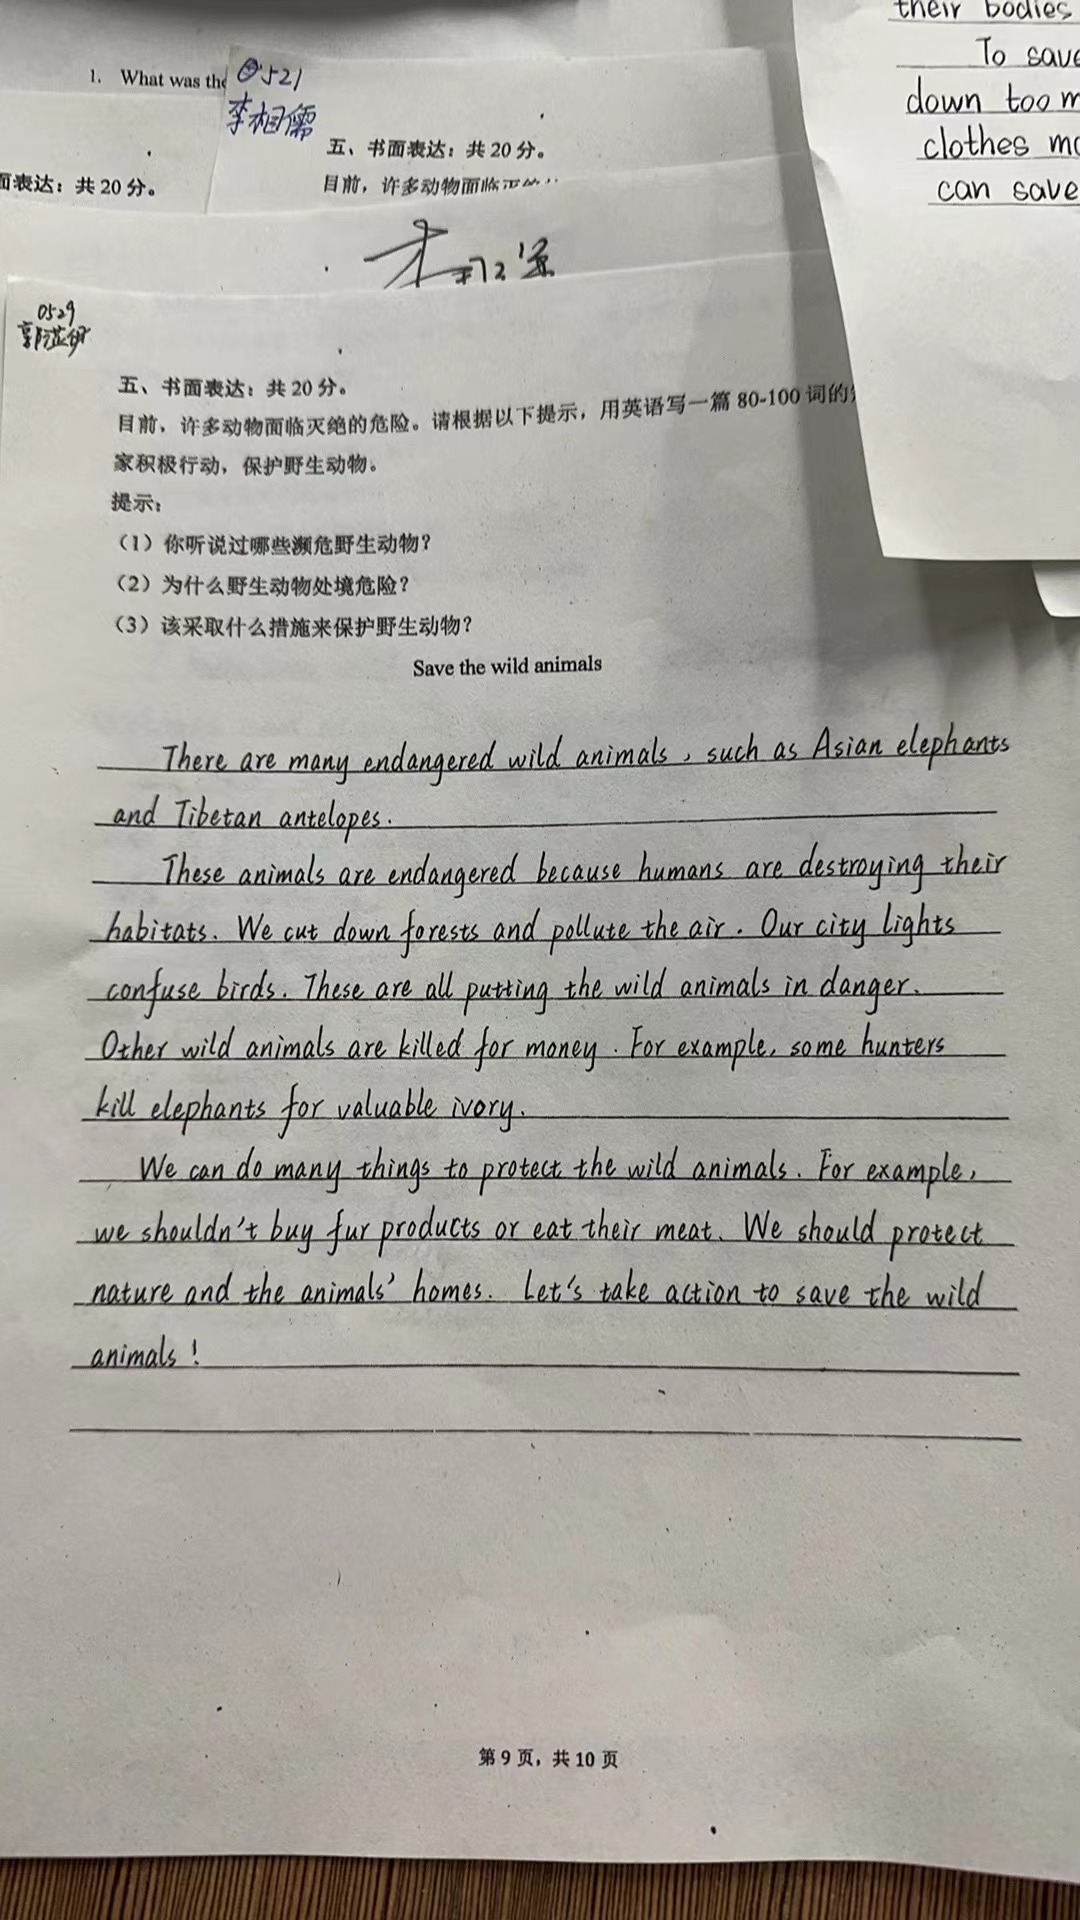 their bodies
To save
down too m
clothes mo
can save
1. What was the
0521
李相儒
五、书面表达：共 20 分。
目前，许多动物面临灭绝的
面表达：共 20 分。
0529
五、书面表达：共 20 分。
目前，许多动物面临灭绝的危险。请根据以下提示，用英语写一篇 80-100 词的
家积极行动，保护野生动物。
提示：
（1）你听说过哪些濒危野生动物？
（2）为什么野生动物处境危险？
（3）该采取什么措施来保护野生动物？
Save the wild animals
There are many endangered wild animals, such as Asian elephants
and Tibetan antelopes.
These animals are endangered because humans are destroying their
habitats. We cut down forests and pollute the air. Our city lights
confuse birds. These are all putting the wild animals in danger.
Other wild animals are killed for money. For example, some hunters
kill elephants for valuable ivory.
We can do many things to protect the wild animals. For example,
we shouldn't buy fur products or eat their meat. We should protect
nature and the animals' homes. Let's take action to save the wild
animals!
第 9 页，共 10 页